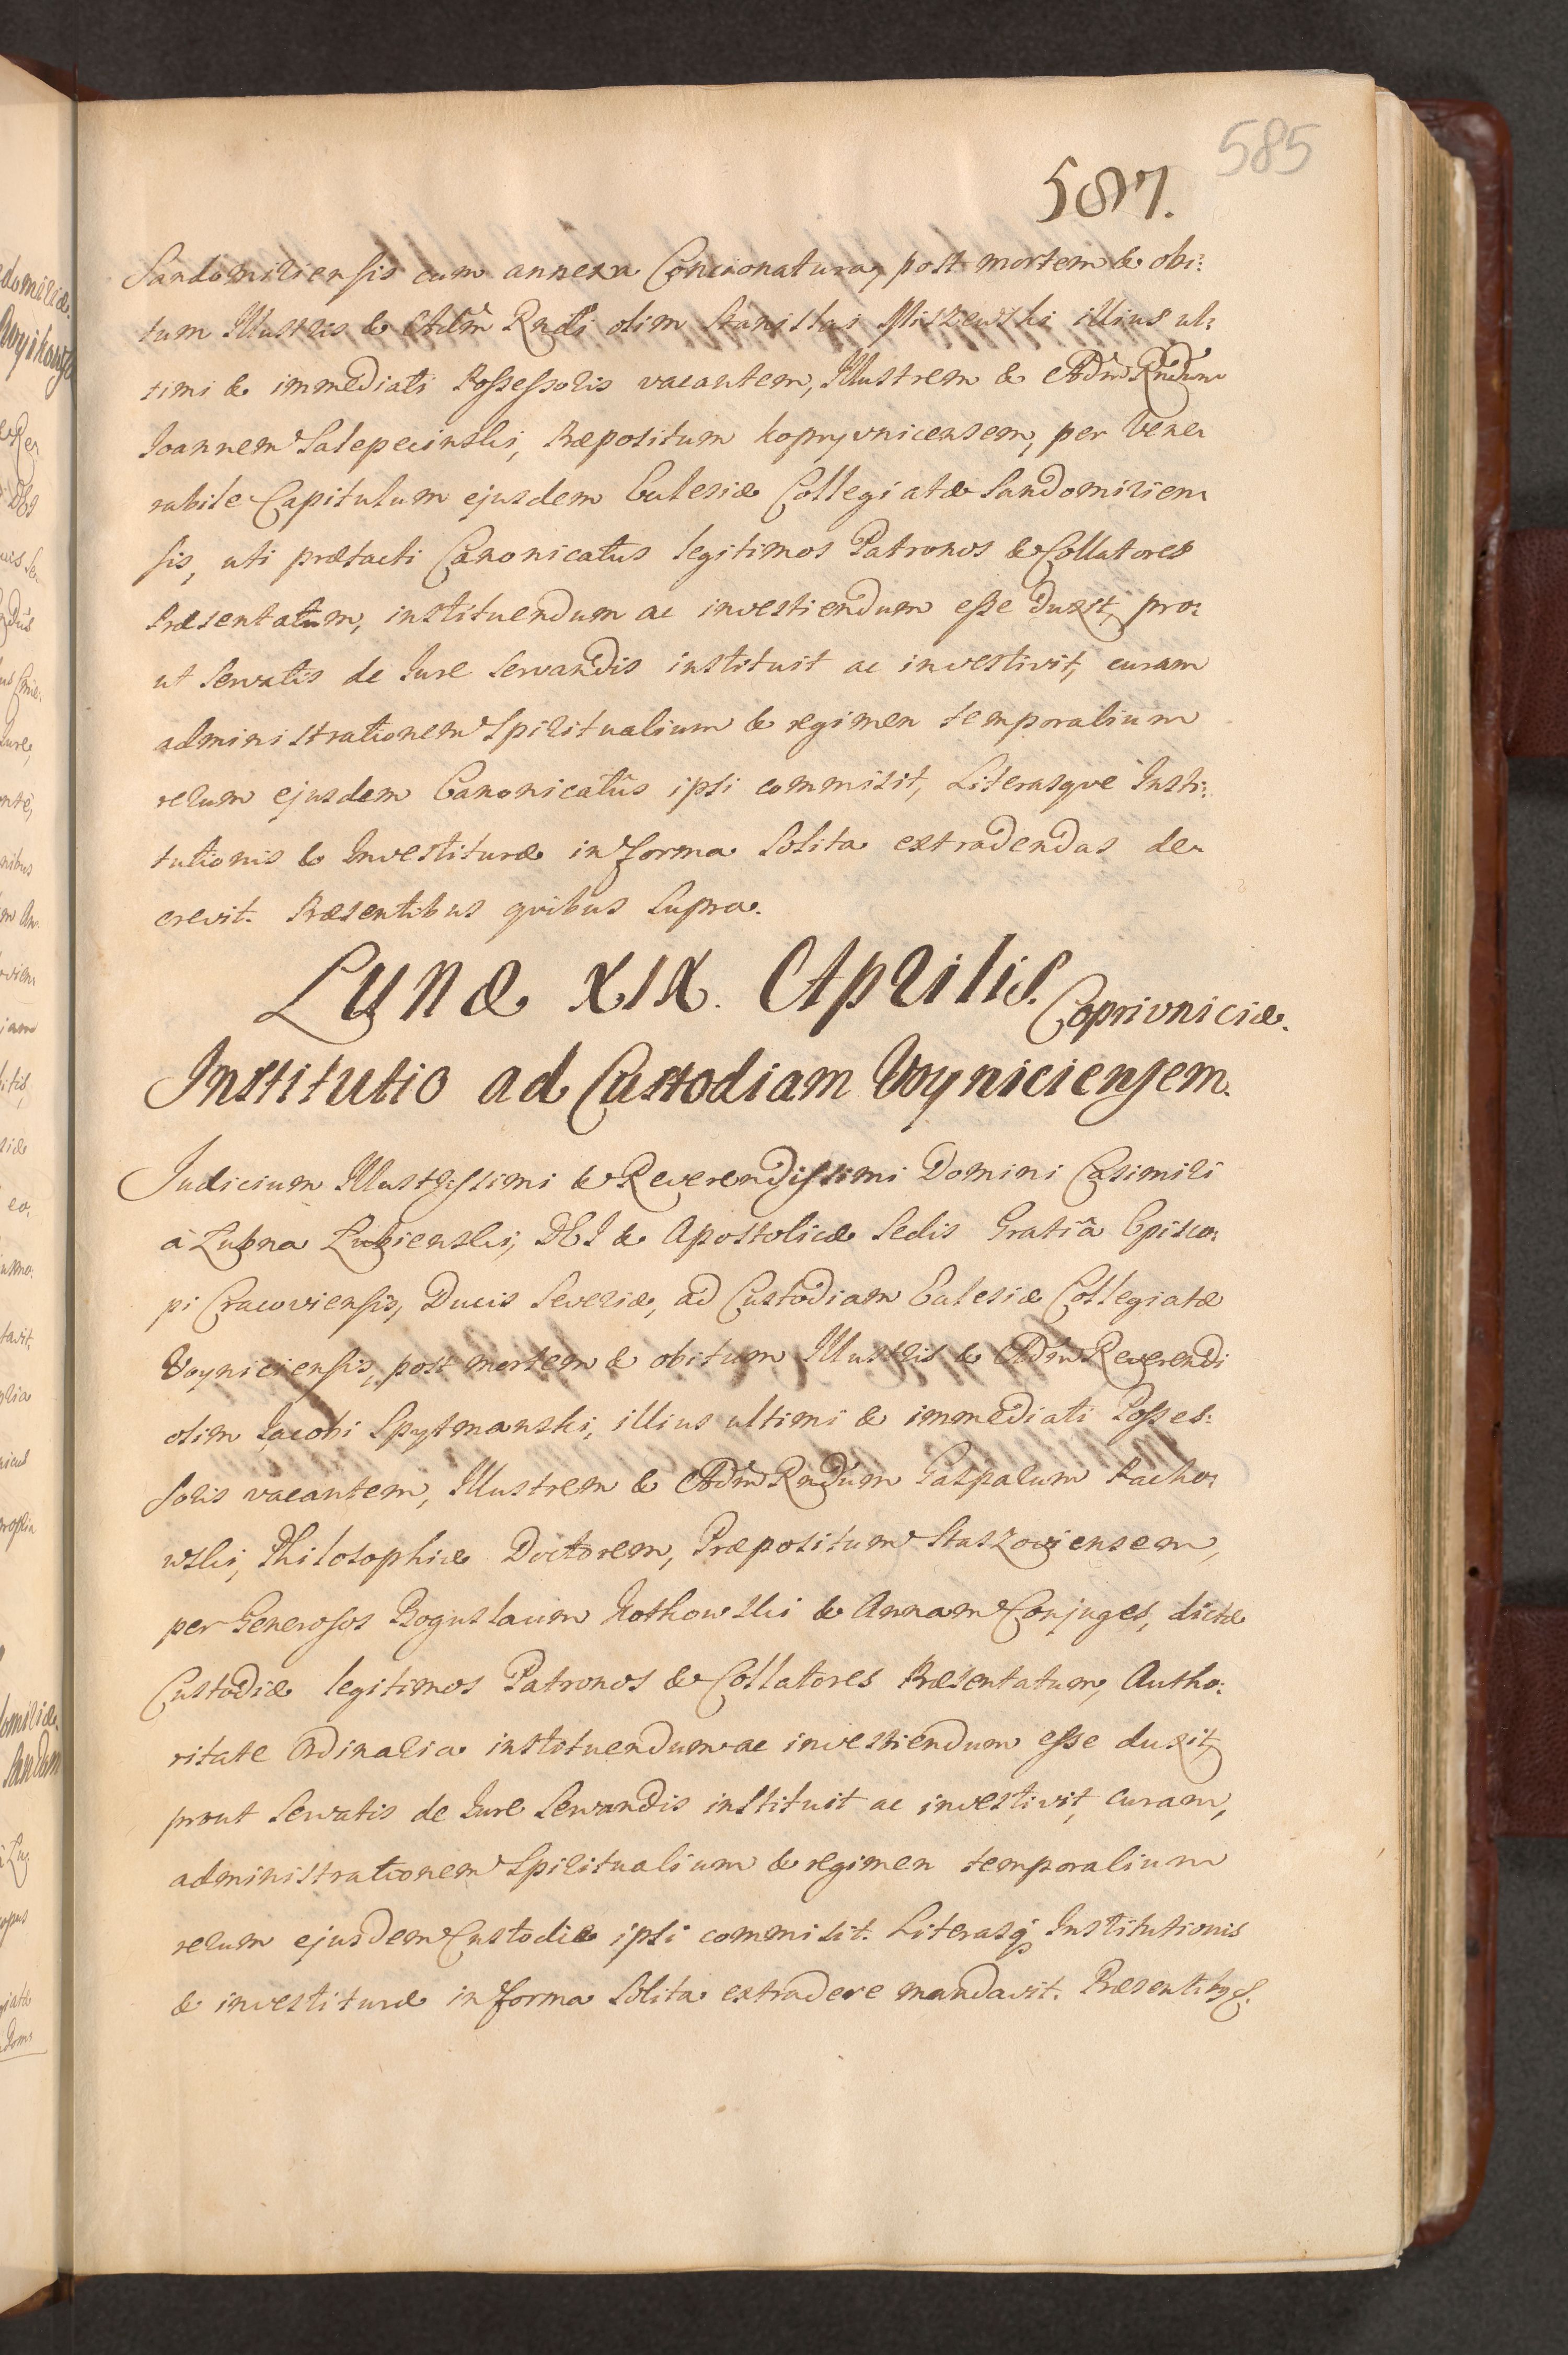 585
587.
Sandomiriensis cum annexa Concionatura, post mortem & obi:
tum Illustris & Adm Rndi olim Stanislai Miszewski illius ul:
timi & immediati Possessoris vacantem, Illustrem & Adm Rndum
Joannem Salepecinski, Præpositum Koprzyvnicensem, per Vene:
rabile Capitulum ejusdem Eclesiæ Collegiatæ Sandomirien:
sis, uti prætacti Canonicatus legitimos Patronos & Collatores
Præsentatum, instituendum ac investiendum esse duxit, pro:
ut servatis de Jure servandis instituit ac investivit, curam
administrationem Spiritualium & regimen temporalium
rerum ejusdem Canonicatûs ipsi commisit, Literasque Insti:
tutionis & Investituræ in forma solita extradendas de:
crevit. Præsentibus quibus supra.
Lunæ XIX. Aprilis. Coprivniciæ.
Institutio ad Custodiam Voyniciensem.
Judicium Illustrissimi & Reverendissimi Domini Casimiri
à Lubna Lubienski, DEI & Apostolicæ Sedis Gratiâ Episco:
pi Cracoviensis, Ducis Severiæ, ad Custodiam Eclesiæ Collegiatæ
Voyniciensis, post mortem & obitum Illustris & Adm Reverendi
olim Jacobi Spytmanski, illius ultimi & immediati Posses:
soris vacantem, Illustrem & Adm Rndum Gasparum
wski, Philosophiæ Doctorem, Præpositum Staszoviensem,
per Generosos Boguslaum & Annam Conjuges, dictæ
Custodiæ legitimos Patronos & Collatores Præsentatum, Autho:
ritate Ordinaria instituendum ac investiendum esse duxit,
prout servatis de Jure servandis instituit ac investivit, curam,
administrationem Spiritualium & regimen temporalium
rerum ejusdem Custodiæ ipsi commisit. Literasq Institutionis
& investituræ in forma solita extradere mandavit. Præsentibus